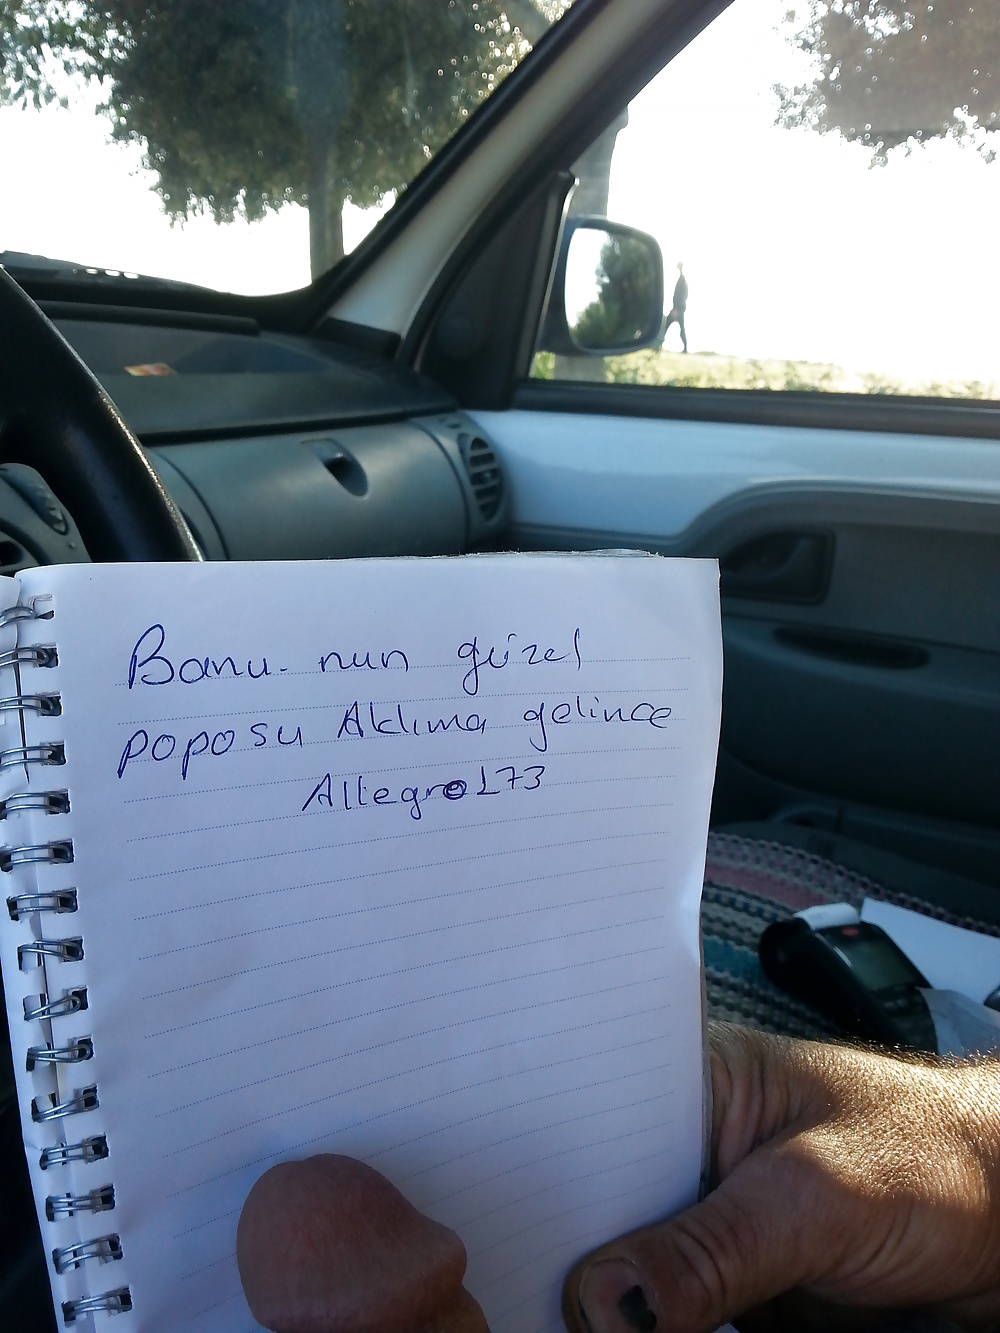 Banu-nun güzel
poposu Aklıma gelince
Allegro173